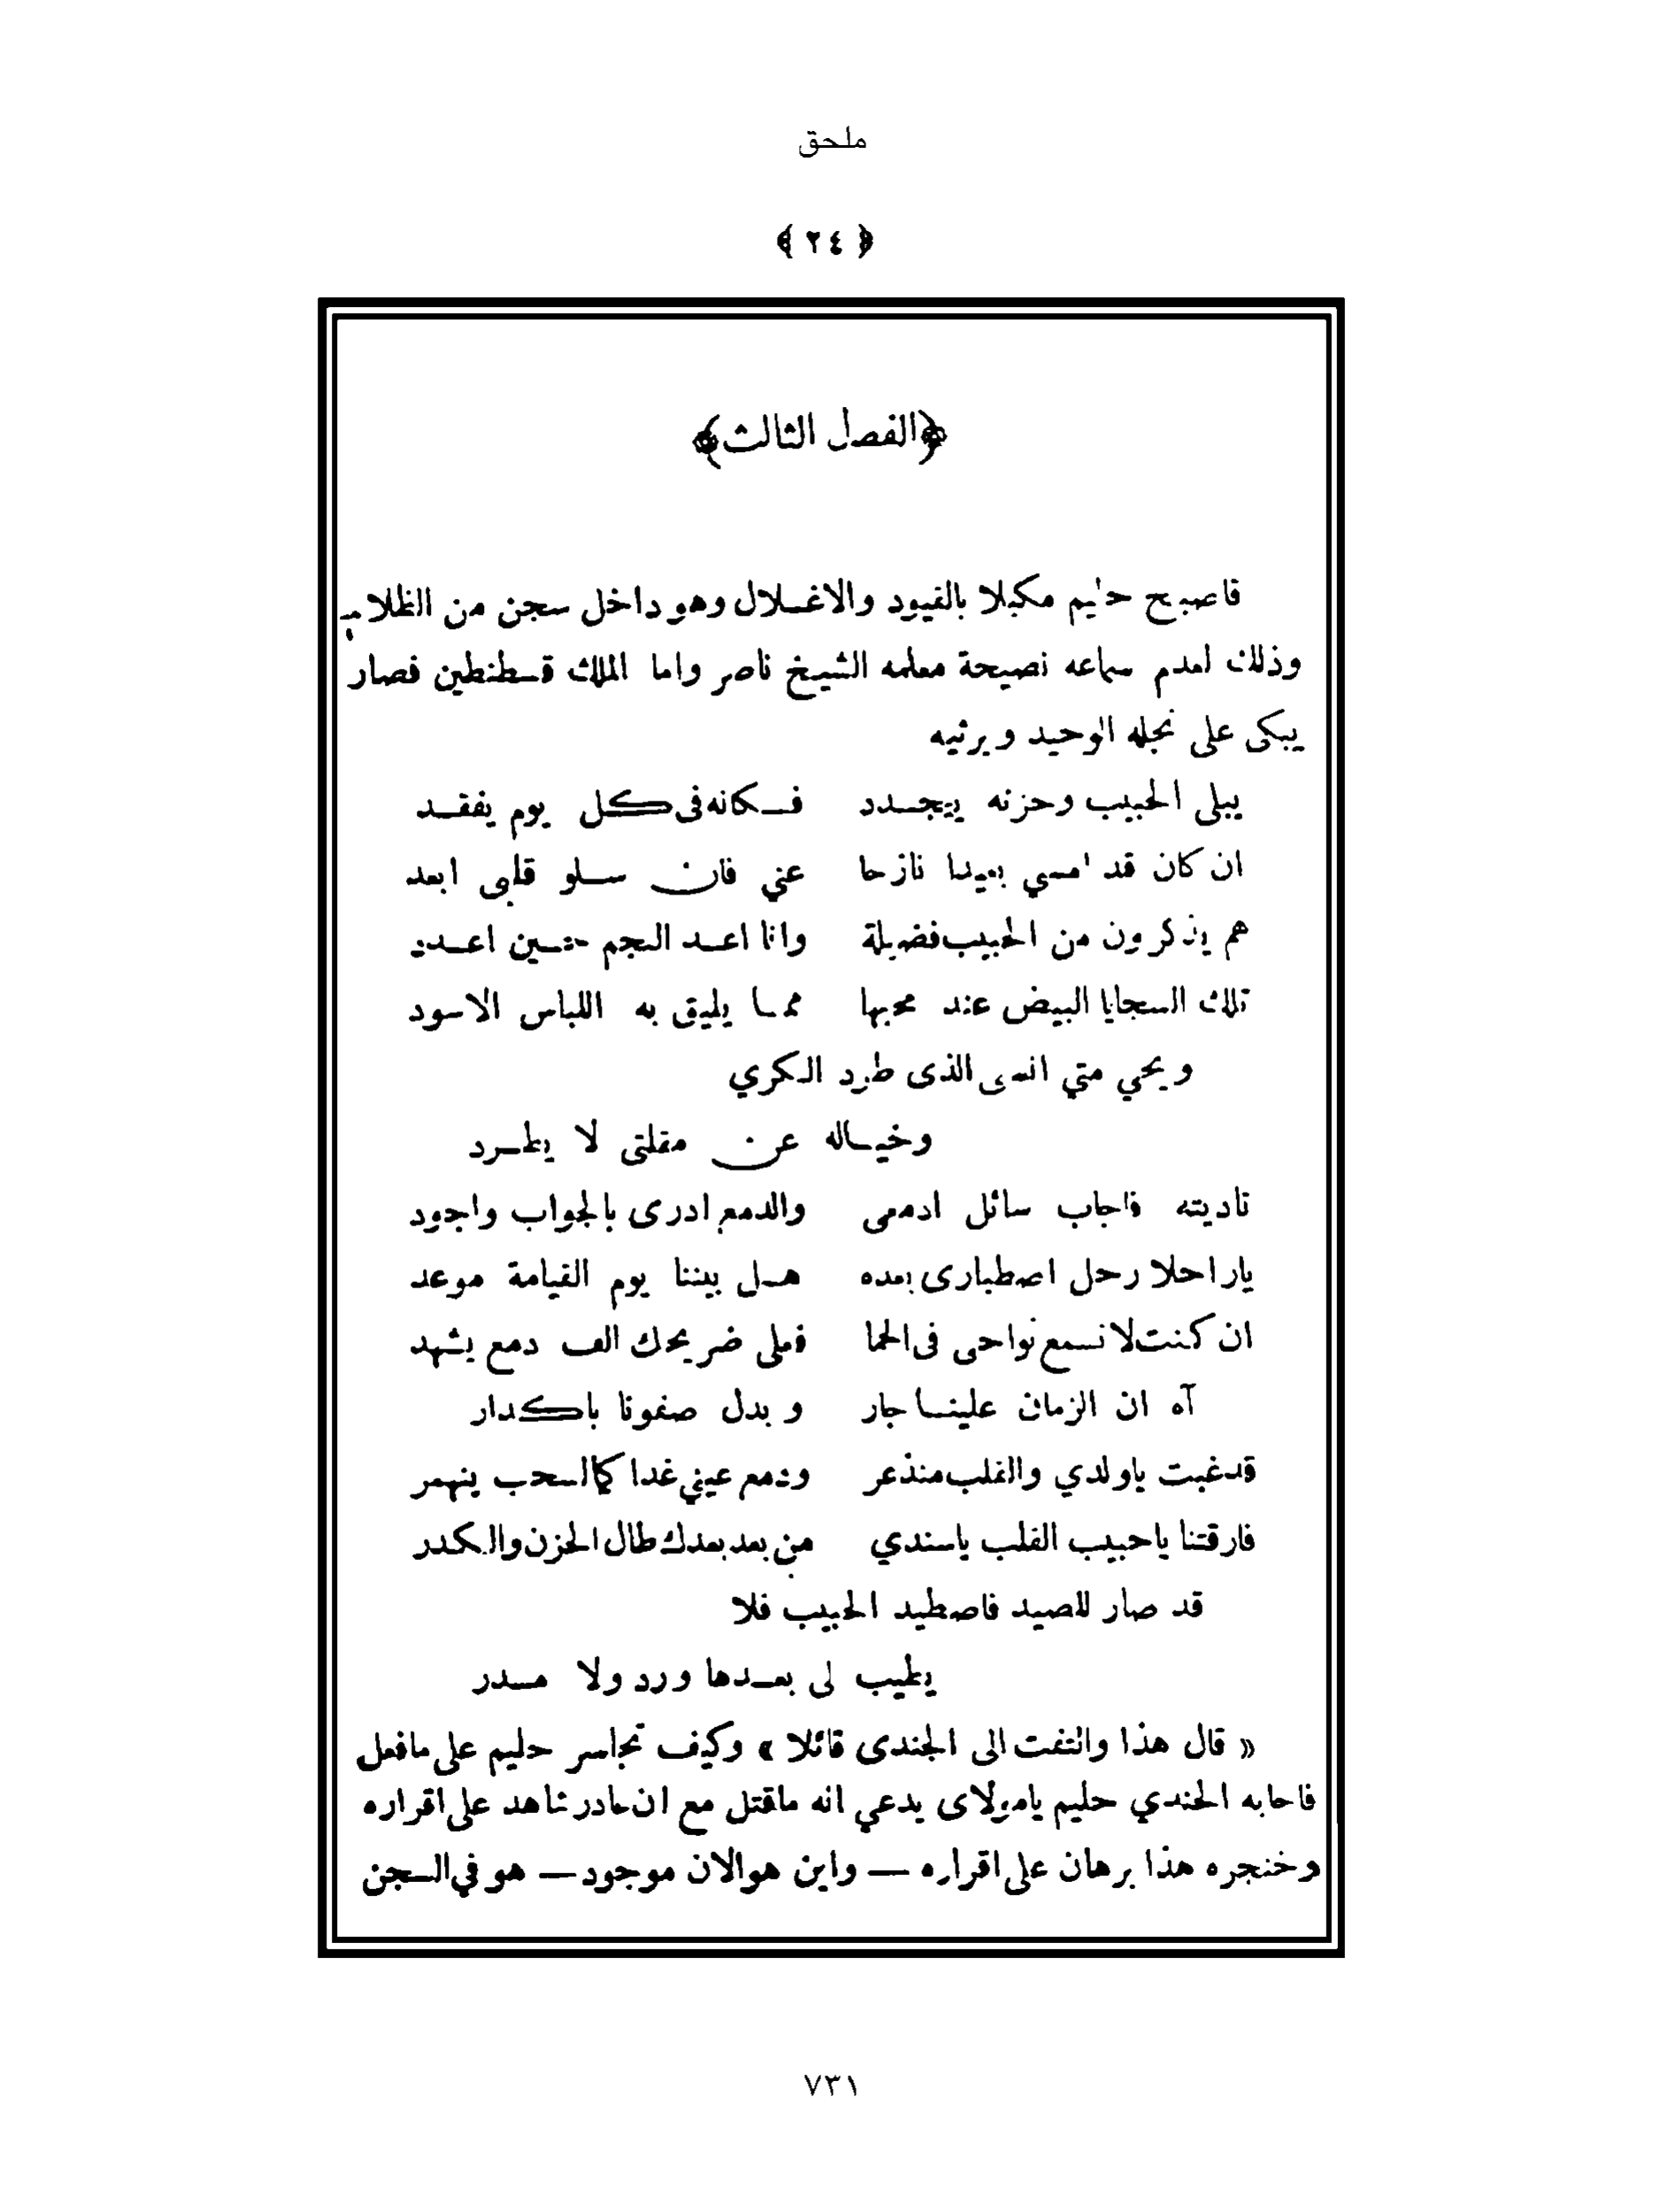 ملحق
﴿ ٢٤ ﴾
﴿الفصل الثالث﴾
فاصبح حليم مكبلا بالقيود والاغلال وهو داخل سجن من الظلام
وذلك لعدم سماعه نصيحة معلمه الشيخ ناصر واما الملك قسطنطين فصار
يبكى على نجله الوحيد ويرثيه
يبلى الحبيب وحزنه يتجدد فكانه فى كل يوم يفقد
ان كان قد امسي بعيدا نازحا عني فان سلو قلبى ابعد
هم يذكرون من الحبيب فضيلة وانا اعد النجم حين اعدد
تلك السجايا البيض عند محبها مما يليق به اللباس الاسود
ويحي متي انسى الذى طرد الكري
وخياله عن مقلتى لا يطرد
ناديته فاجاب سائل ادمعى والدمع ادرى بالجواب واجود
ياراحلا رحل اصطبارى بعده هل بيننا يوم القيامة موعد
ان كنت لا تسمع نواحى فى الحما فعلى ضريحك الف دمع يشهد
آه ان الزمان علينا جار وبدل صفونا باكدار
قد غبت ياولدي والقلب منذعر ودمع عيني غدا كالسحب ينهمر
فارقتنا ياحبيب القلب ياسندي من بعد بعدك طال الحزن والكدر
قد صار للصيد فاصطيد الحبيب فلا
يطيب لى بعدها ورد ولا صدر
« قال هذا والتفت الى الجندى قائلا » وكيف تجاسر حليم على مافعل
فاجابه الجندي حليم يامولاى يدعي انه ماقتل مع ان نادر شاهد على اقراره
وخنجره هذا برهان على اقراره — واين هو الان موجود — هو في السجن
٧٣١